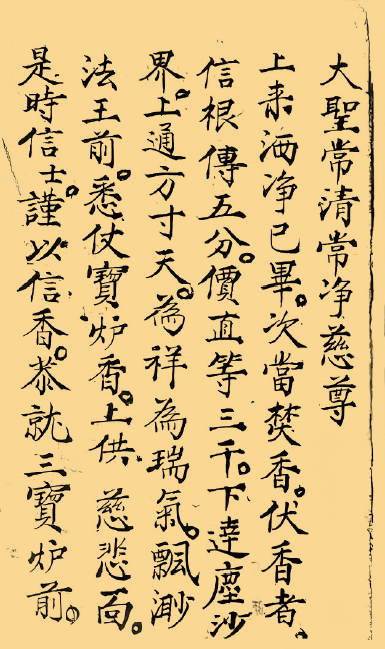 大聖常清常净慈尊
上来洒净已畢。次當焚香。伏香者、
信根傳五分。價直等三千。下達塵沙
界。上通方寸天。為祥為瑞氣。飄渺
法王前。悉仗寶炉香。上供 慈悲面。
是時信士。謹以信香。恭就三寶炉前。